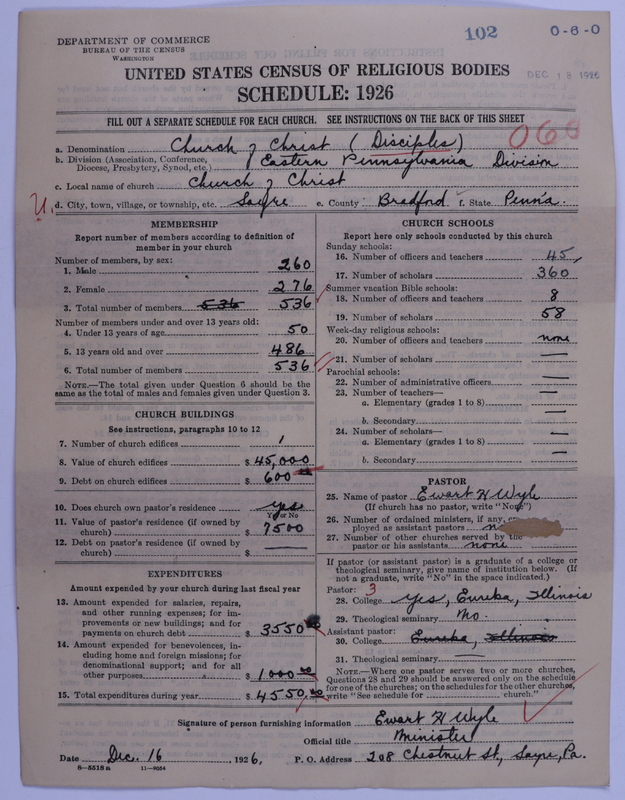 102
0-6-0
DEPARTMENT OF COMMERCE
BUREAU OF THE CENSUS
WASHINGTON
DEC 18 1926
UNITED STATES CENSUS OF RELIGIOUS BODIES
SCHEDULE: 1926
FILL OUT A SEPARATE SCHEDULE FOR EACH CHURCH. SEE INSTRUCTIONS ON THE BACK OF THIS SHEET
060
a. Denomination Church of Christ (Disciples)
b. Division (Association, Conference, Diocese, Presbytery, Synod, etc.) Eastern Pennsylvania Division
c. Local name of church Church of Christ
U. d. City, town, village, or township, etc. Sayre e. County Bradford f. State Penn'a.
MEMBERSHIP
Report number of members according to definition of
member in your church
Number of members, by sex:
1. Male 260
2. Female 276
3. Total number of members 536 536
Number of members under and over 13 years old:
4. Under 13 years of age 50
5. 13 years old and over 486
6. Total number of members 536
NOTE.—The total given under Question 6 should be the
same as the total of males and females given under Question 3.
CHURCH BUILDINGS
See instructions, paragraphs 10 to 12
7. Number of church edifices 1
8. Value of church edifices $ 45,000
9. Debt on church edifices $ 600
10. Does church own pastor's residence yes
Yes or No
11. Value of pastor's residence (if owned by
church) $ 7500
12. Debt on pastor's residence (if owned by
church) $ —
EXPENDITURES
Amount expended by church during last fiscal year
13. Amount expended for salaries, repairs,
and other running expenses; for im-
provements or new buildings; and for
payments on church debt $ 3550
14. Amount expended for benevolences, in-
cluding home and foreign missions; for
denominational support; and for all
other purposes $ 1000.00
15. Total expenditures during year $ 4550.00
CHURCH SCHOOLS
Report here only schools conducted by this church
Sunday schools:
16. Number of officers and teachers 45
17. Number of scholars 360
Summer vacation Bible schools:
18. Number of officers and teachers 8
19. Number of scholars 58
Week-day religious schools:
20. Number of officers and teachers none
21. Number of scholars —
Parochial schools:
22. Number of administrative officers —
23. Number of teachers—
a. Elementary (grades 1 to 8) —
b. Secondary —
24. Number of scholars—
a. Elementary (grades 1 to 8) —
b. Secondary —
PASTOR
25. Name of pastor Ewart H Wyle
(If church has no pastor, write "None")
26. Number of ordained ministers, if any, em-
ployed as assistant pastors
27. Number of other churches served by the
pastor or his assistants none
If pastor (or assistant pastor) is a graduate of a college or
theological seminary, give name of institution below. (If
not a graduate, write "No" in the space indicated.)
Pastor: 3
28. College yes, Eureka, Illinois
29. Theological seminary no.
Assistant pastor:
30. College Eureka, Illinois
31. Theological seminary —
NOTE.—Where one pastor serves two or more churches,
Questions 28 and 29 should be answered only on the schedule
for one of the churches; on the schedules for the other churches,
write "See schedule for ........ church."
Signature of person furnishing information Ewart H Wyle
Official title Minister
Date Dec. 16, 1926. P. O. Address 208 Chestnut St., Sayre, Pa.
8—5518 a 11—9054